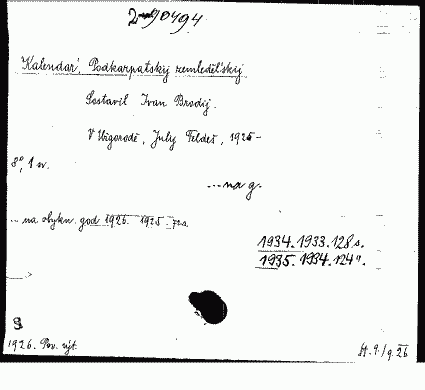 Kalendar', Podkarpatskij zemleděl'skij
Sostavil Ivan Brodij.
V Užgorodě, July Feldeš, 1925-
8°, 1 sv.
... na g.
... na obykn. god 1926. 1925.
1934. 1933. 128 s.
1935. 1934. 124 ".
9
1926. Pov. výt.